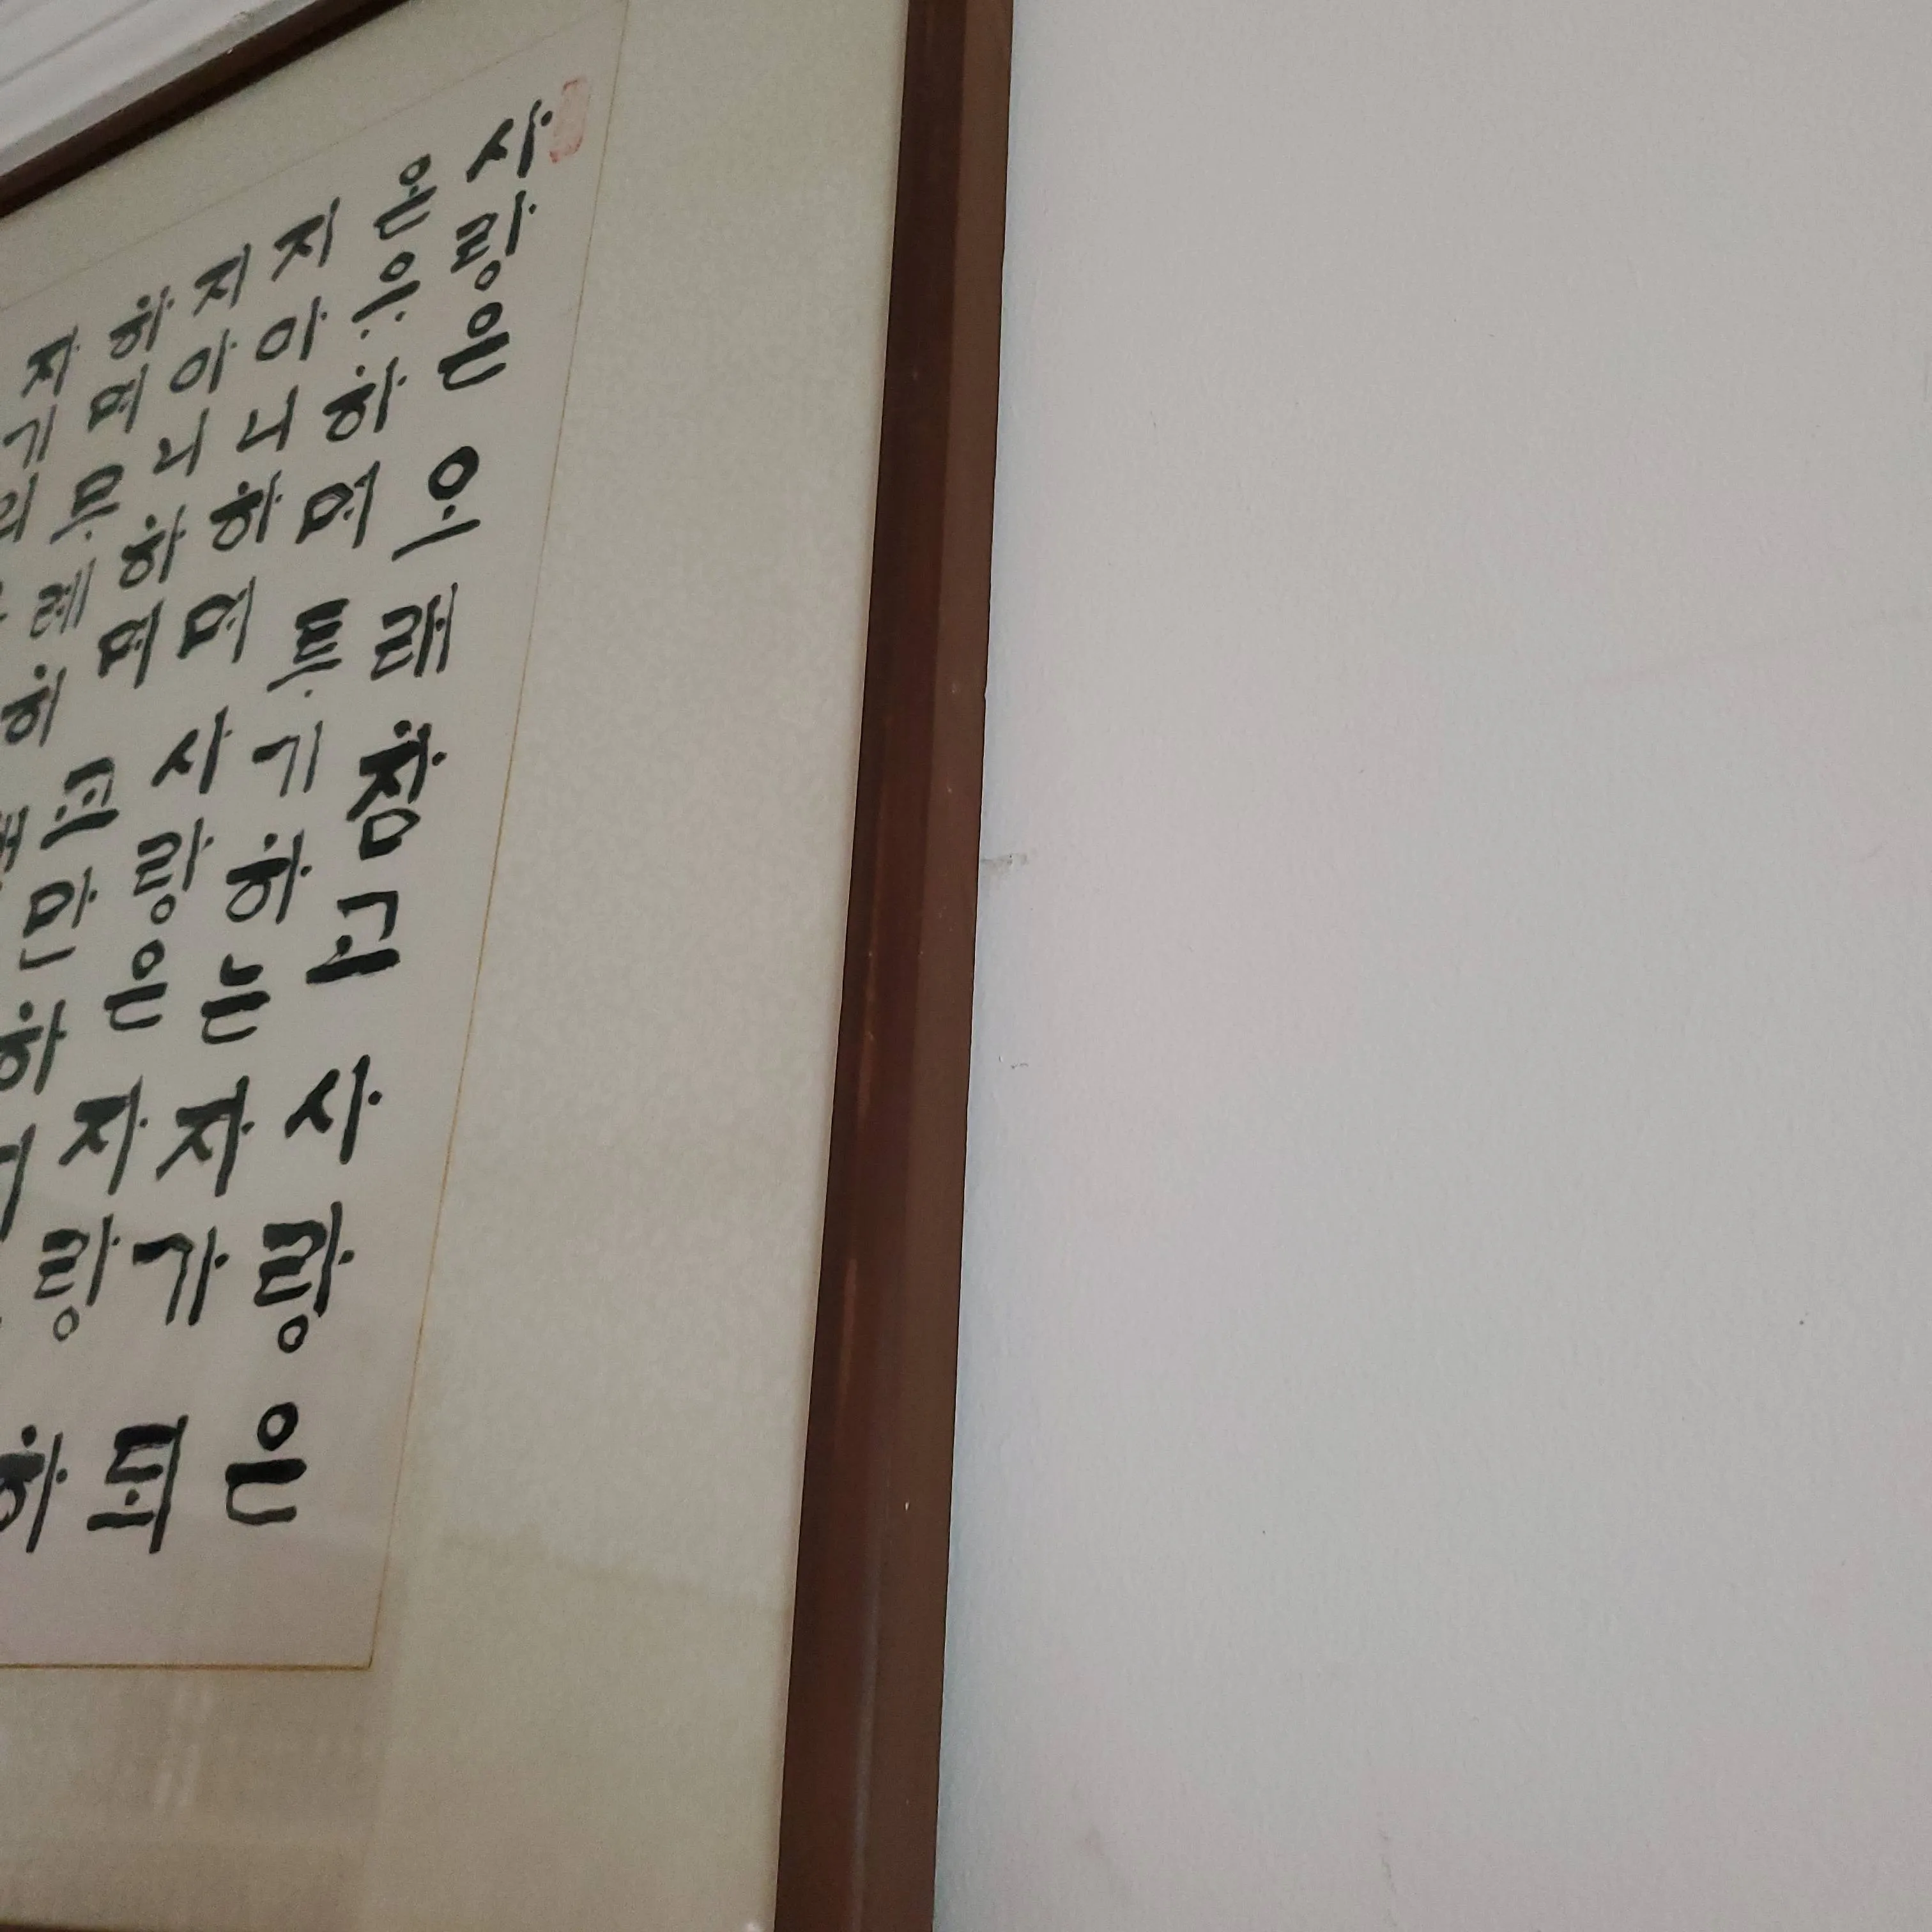 사랑은 오래 참고 사랑은
온유하며 투기하는 자가 되
지 아니하며 사랑은 자랑하
지 아니하며 교만하
하며 무례히
자기